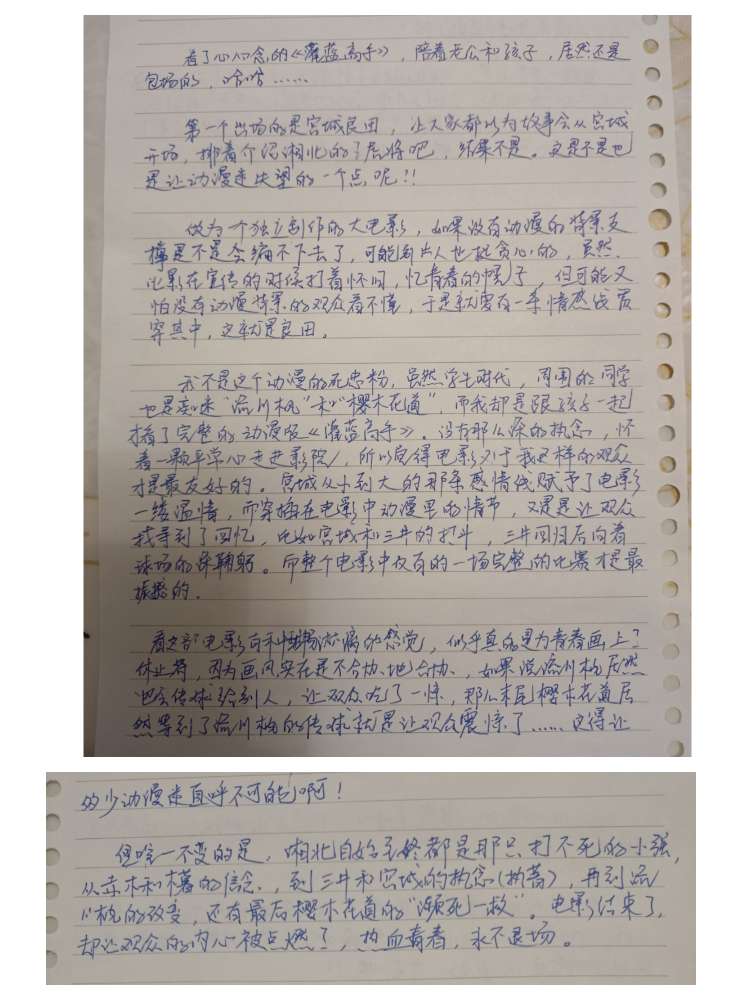 看了心心念的《灌蓝高手》，陪着老公和孩子，居然还是
包场的，哈哈……
第一个出场的是宫城良田，让大家都以为故事会从宫城
开场，挪着个 湘北的 吧，结果不是。这是不是也
是让动漫迷失望的一个点呢！！
做为一个独立制作的大电影，如果没有动漫的背景支
撑是不是会编不下去了，可能制片人也挺贪心的，虽然
电影在宣传的时候打着怀旧，忆青春的幌子，但可能又
怕没有动漫背景的观众看不懂，于是就要有一条情感线贯
穿其中，这就是良田。
我不是这个动漫的死忠粉，虽然学生时代，周围的同学
也是卖迷“流川枫”和“樱木花道”，而我却是跟孩子一起
才看了完整的动漫版《灌蓝高手》。没有那么深的执念，怀
着一颗平常心走进影院，所以觉得电影对于我这样的观众
才是最友好的。宫城从小到大的那条感情线赋予了电影
一缕温情，而穿插在电影中动漫里的情节，又是让观众
找寻到了回忆，比如宫城和三井的打斗，三井回归后向着
球场的深鞠躬。而整个电影中仅有的一场完整的比赛才是最
振奋的。
看这部电影有种酣畅淋漓的感觉，似乎真的是为青春画上了
休止符，因为画风实在是不合协地合协，如果说流川枫居然
也会传球给别人，让观众吃了一惊，那么末尾樱木花道居
然等到了流川枫的传球就是让观众震惊了……这得让
多少动漫迷直呼不可能啊！
但唯一不变的是，湘北自始至终都是那只打不死的小强，
从赤木和木暮的信念，到三井和宫城的执念(执着)，再到流
川枫的改变，还有最后樱木花道的“濒死一救”。电影结束了，
却让观众的内心被点燃了，热血青春，永不退场。